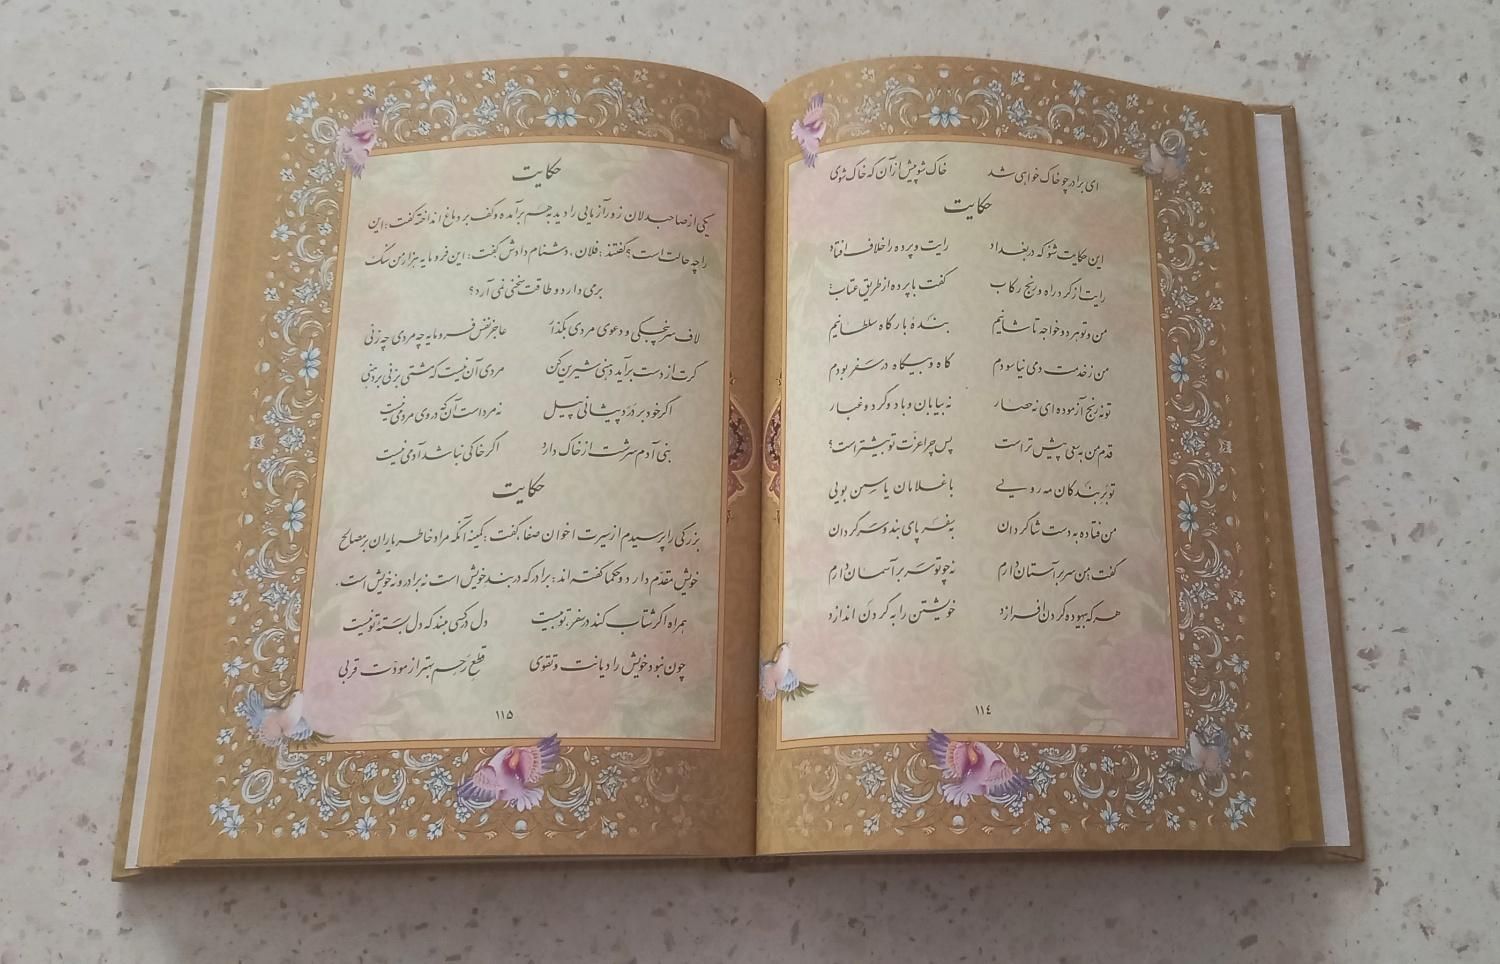 ای برادر چو خاک خواهی شد خاک شو پیش از آن که خاک شوی
حکایت
این حکایت شنو که در بغداد رایت و پرده را خلاف افتاد
رایت از گرد راه و رنج رکاب گفت با پرده از طریق عتاب:
من و تو هر دو خواجه تاشانیم بندهٔ بارگاه سلطانیم
من ز خدمت دمی نیاسودم گاه و بیگاه در سفر بودم
تو نه رنج آزموده ای نه حصار نه بیابان و باد و گرد و غبار
قدم من به سعی پیش تر است پس چرا عزّت تو بیشتر است؟
تو برِ بندگان مه رویی با غلامان یاسمن بویی
من فتاده به دست شاگردان به سفر پای بند و سرگردان
گفت: من سر بر آستان دارم نه چو تو سر بر آسمان دارم
هر که بیهوده گردن افرازد خویشتن را به گردن اندازد
۱۱۴
حکایت
یکی از صاحبدلان زورآزمایی را دید به هم برآمده و کف بر دماغ انداخته گفت: این
را چه حالت است؟ گفتند: فلان، دشنام دادش گفت: این فرومایه هزار من سنگ
بر می دارد و طاقت سخنی نمی آرد؟
لاف سرپنجگی و دعوی مردی بگذار عاجز نفس فرومایه چه مردی چه زنی
گرت از دست برآید دهنی شیرین کن مردی آن نیست که مشتی بزنی بر دهنی
اگر خود بر دَرَد پیشانی پیل نه مرد است آن که در وی مردمی نیست
بنی آدم سرشت از خاک دارد اگر خاکی نباشد آدمی نیست
حکایت
بزرگی را پرسیدم از سیرت اخوان صفا، گفت: کمینه آنکه مراد خاطر یاران بر مصالح
خویش مقدّم دارد و حکما گفته اند: برادر که در بند خویش است نه برادر و نه خویش است.
همراه اگر شتاب کند در سفر، تو بیست دل در کسی مبند که دل بستهٔ تو نیست
چون نبود خویش را دیانت و تقوی قطع رَحِم بهتر از مودّت قربی
۱۱۵